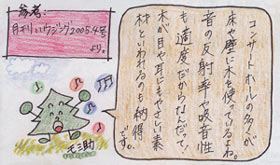 参考:
月刊ハウジング2005.4号
より。
コンサートホールの多くが
床や壁に木を使ってるよね。
音の反射率や吸音性
も適度だからなんだって!
木が目や耳にもやさしい素
材といわれるのも納得
です。
天三助